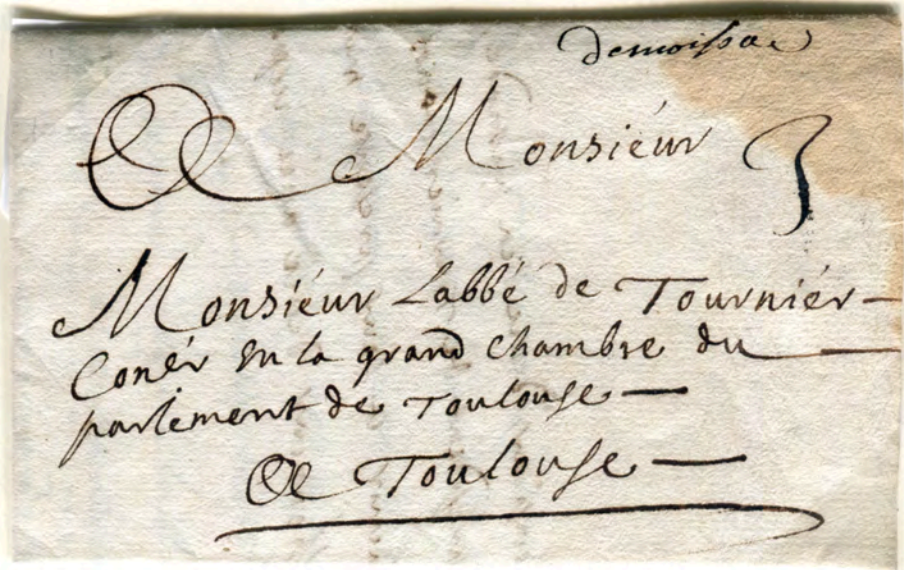 demoissac
A Monsieur 3
Monsiéur Labbé de Tourniér
Conér en la grand Chambre du
parlement de Toulouse
A Toulouse